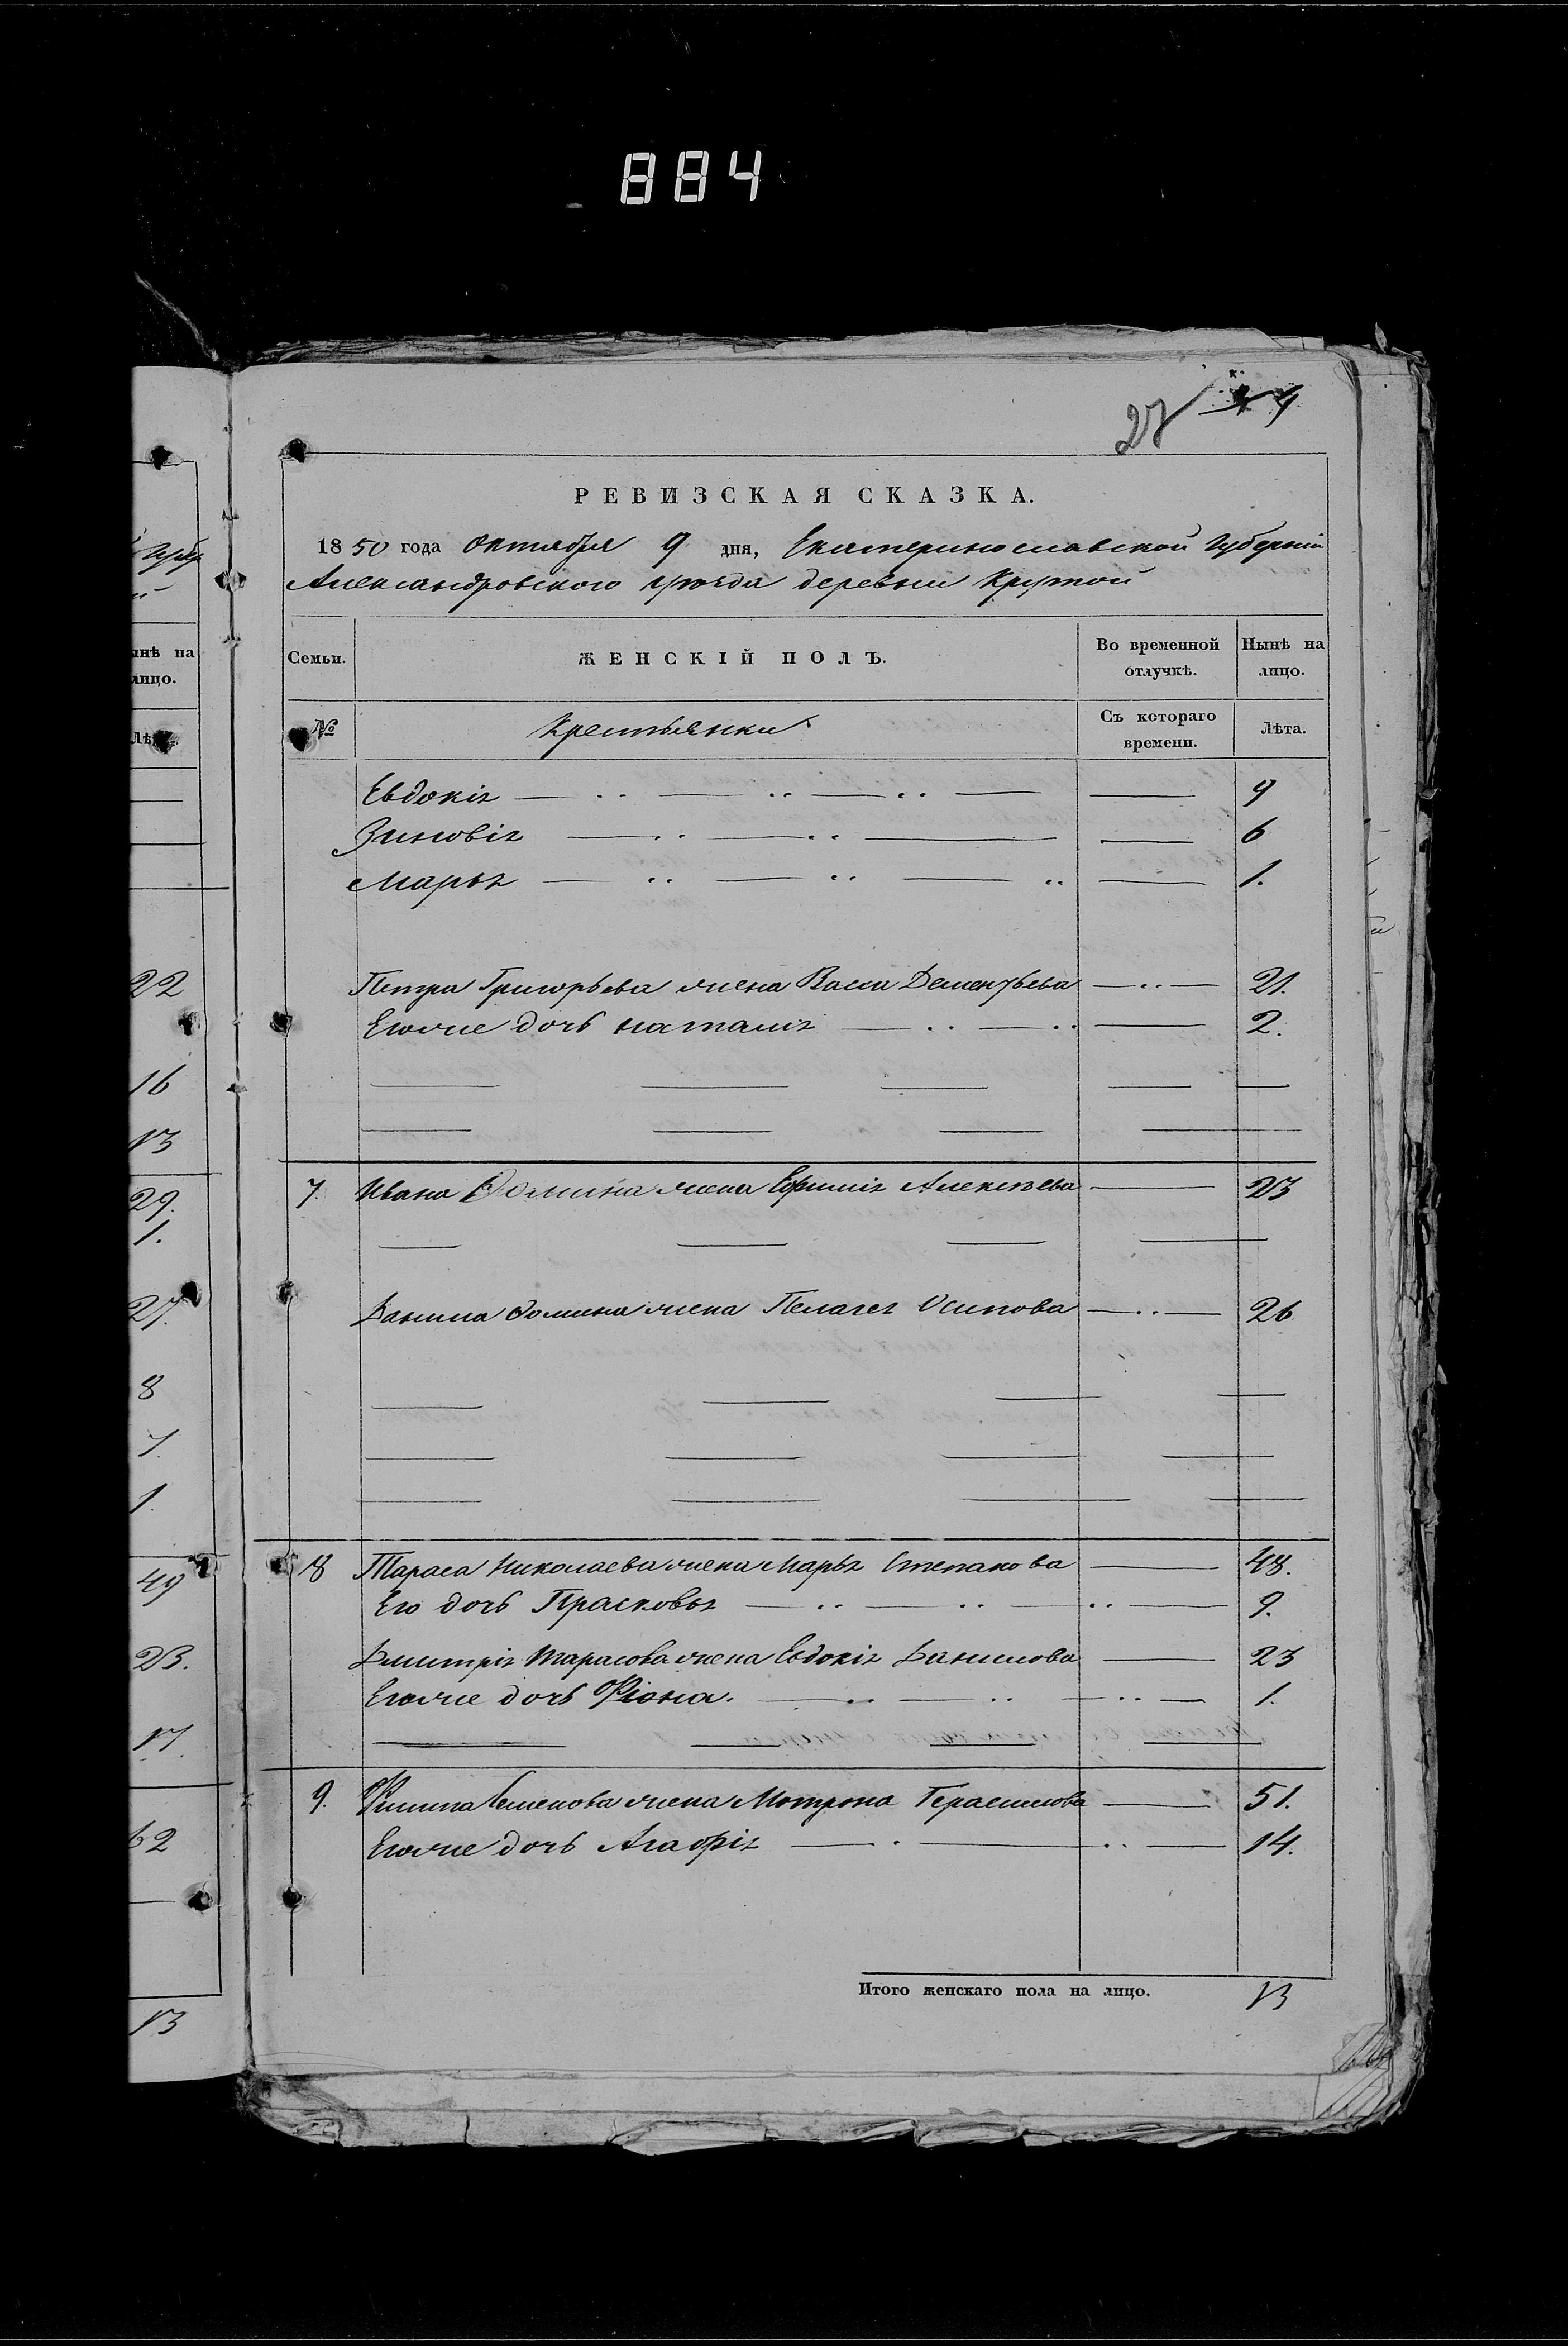 884
27
РЕВИЗСКАЯ СКАЗКА.
1850 года Октября 9 дня, Екатеринославской Губерніи
Александровского уѣзда деревни Крутой
Семьи.
ЖЕНСКІЙ ПОЛЪ.
Во временной отлучкѣ.
Нынѣ на лицо.
№
Крестьянки
Съ котораго времени.
Лѣта.
Евдокія 9
Зиновія 6
Марья 1.
Петра Григорьева жена Васса Дементьева 21.
Егоже дочь Наталія 2.
7. Ивана Фомина жена Ефимія Алексѣева 23
Данила Фомина жена Пелагея Осипова 26
8 Тараса Николаева жена Марья Степанова 48.
Его дочь Прасковья 9.
Дмитрія Тарасова жена Евдокія Данилова 23
Егоже дочь Фіона. 1.
9. Филипа Семенова жена Мотрона Герасимова 51.
Егоже дочь Агафія 14.
Итого женскаго пола на лицо. 13
Губер
ынѣ на
лицо.
22
16
13
29.
1.
27.
8
7.
1.
49
23.
17.
62
13